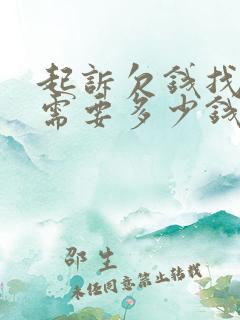 起訴欠錢找
需要多少錢
邵生
未经同意禁止转载